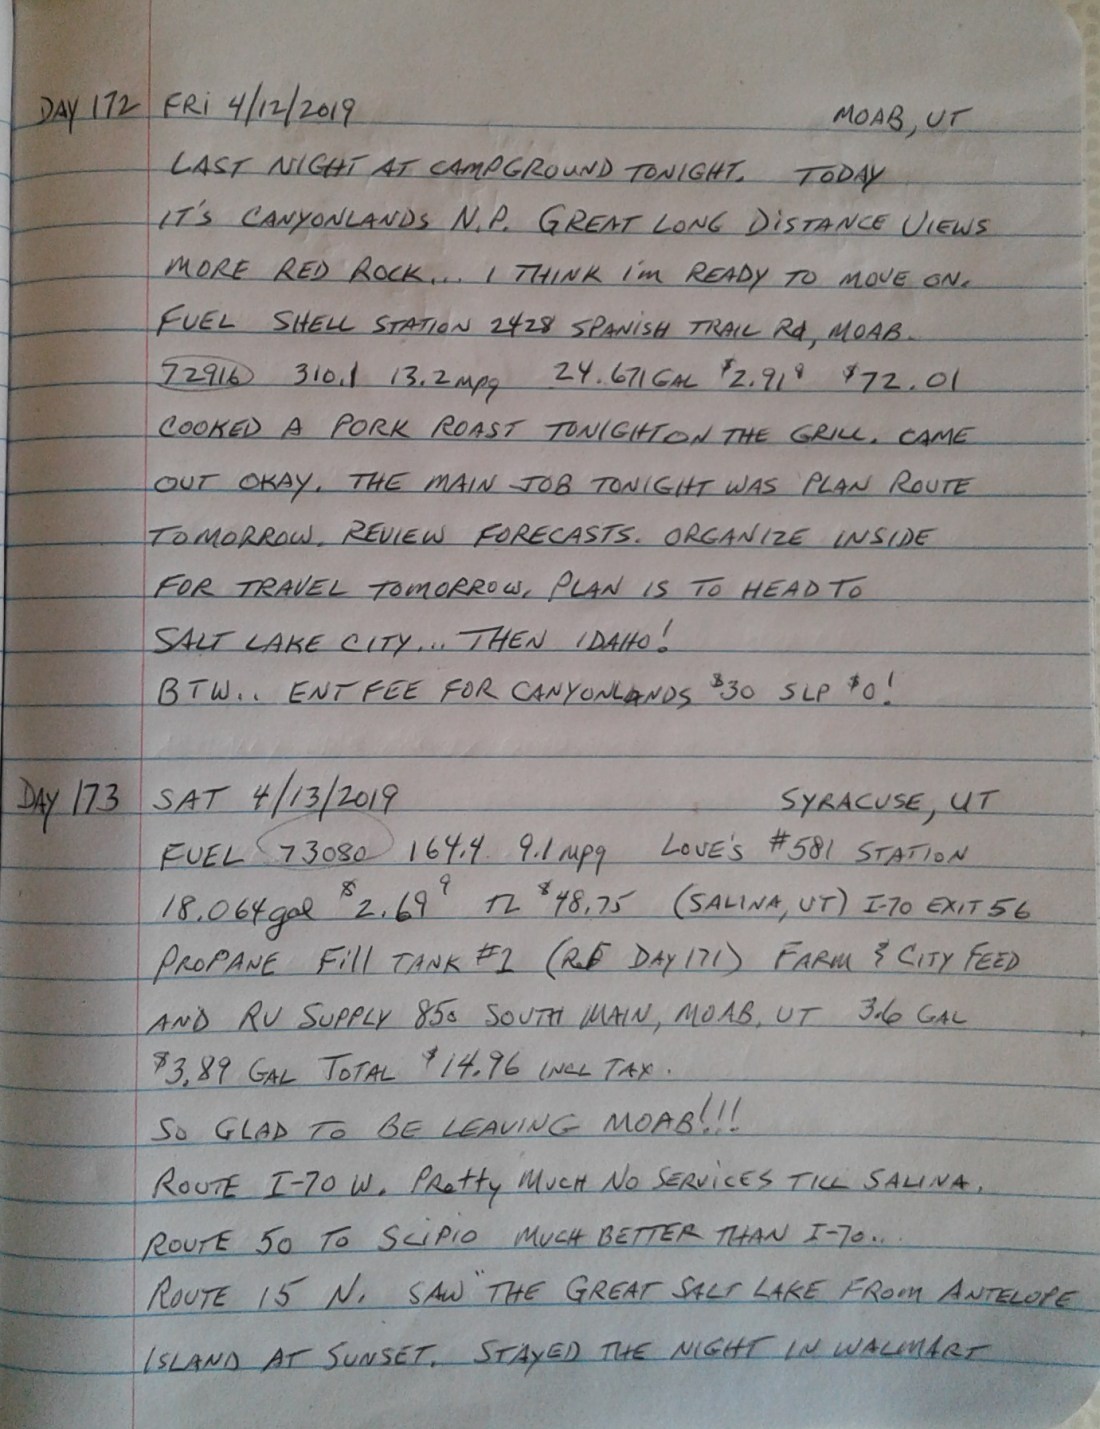 DAY 172 FRi 4/12/2019 MOAB, UT
LAST NIGHT AT CAMPGROUND TONIGHT. TODAY
IT'S CANYONLANDS N.P. GREAT LONG DISTANCE VIEWS
MORE RED ROCK... I THINK I'm READY TO MOVE ON.
FUEL SHELL STATION 2428 SPANISH TRAIL Rd, MOAB.
72916 310.1 13.2 mpg 24.671 GAL $2.91⁹ $72.01
COOKED A PORK ROAST TONIGHT ON THE GRILL. CAME
OUT OKAY. THE MAIN JOB TONIGHT WAS PLAN ROUTE
TOMORROW. REVIEW FORECASTS. ORGANIZE INSIDE
FOR TRAVEL TOMORROW. PLAN IS TO HEAD TO
SALT LAKE CITY... THEN IDAHO!
BTW.. ENT FEE FOR CANYONLANDS $30 SLP $0!
DAY 173 SAT 4/13/2019 SYRACUSE, UT
FUEL 73080 164.4 9.1 mpg LOVE'S #581 STATION
18.064 gal $2.69⁹ TL $48.75 (SALINA, UT) I-70 EXIT 56
PROPANE Fill TANK #1 (RE DAY 171) FARM & CITY FEED
AND RV SUPPLY 850 SOUTH MAIN, MOAB, UT 3.6 GAL
$3.89 GAL TOTAL $14.96 INCL TAX.
SO GLAD TO BE LEAVING MOAB!!!
ROUTE I-70 W. PRetty MUCH NO SERVICES TILL SALINA.
ROUTE 50 TO SCIPIO MUCH BETTER THAN I-70..
ROUTE 15 N. SAW "THE GREAT SALT LAKE FROM ANTELOPE
ISLAND AT SUNSET. STAYED THE NIGHT IN WALMART